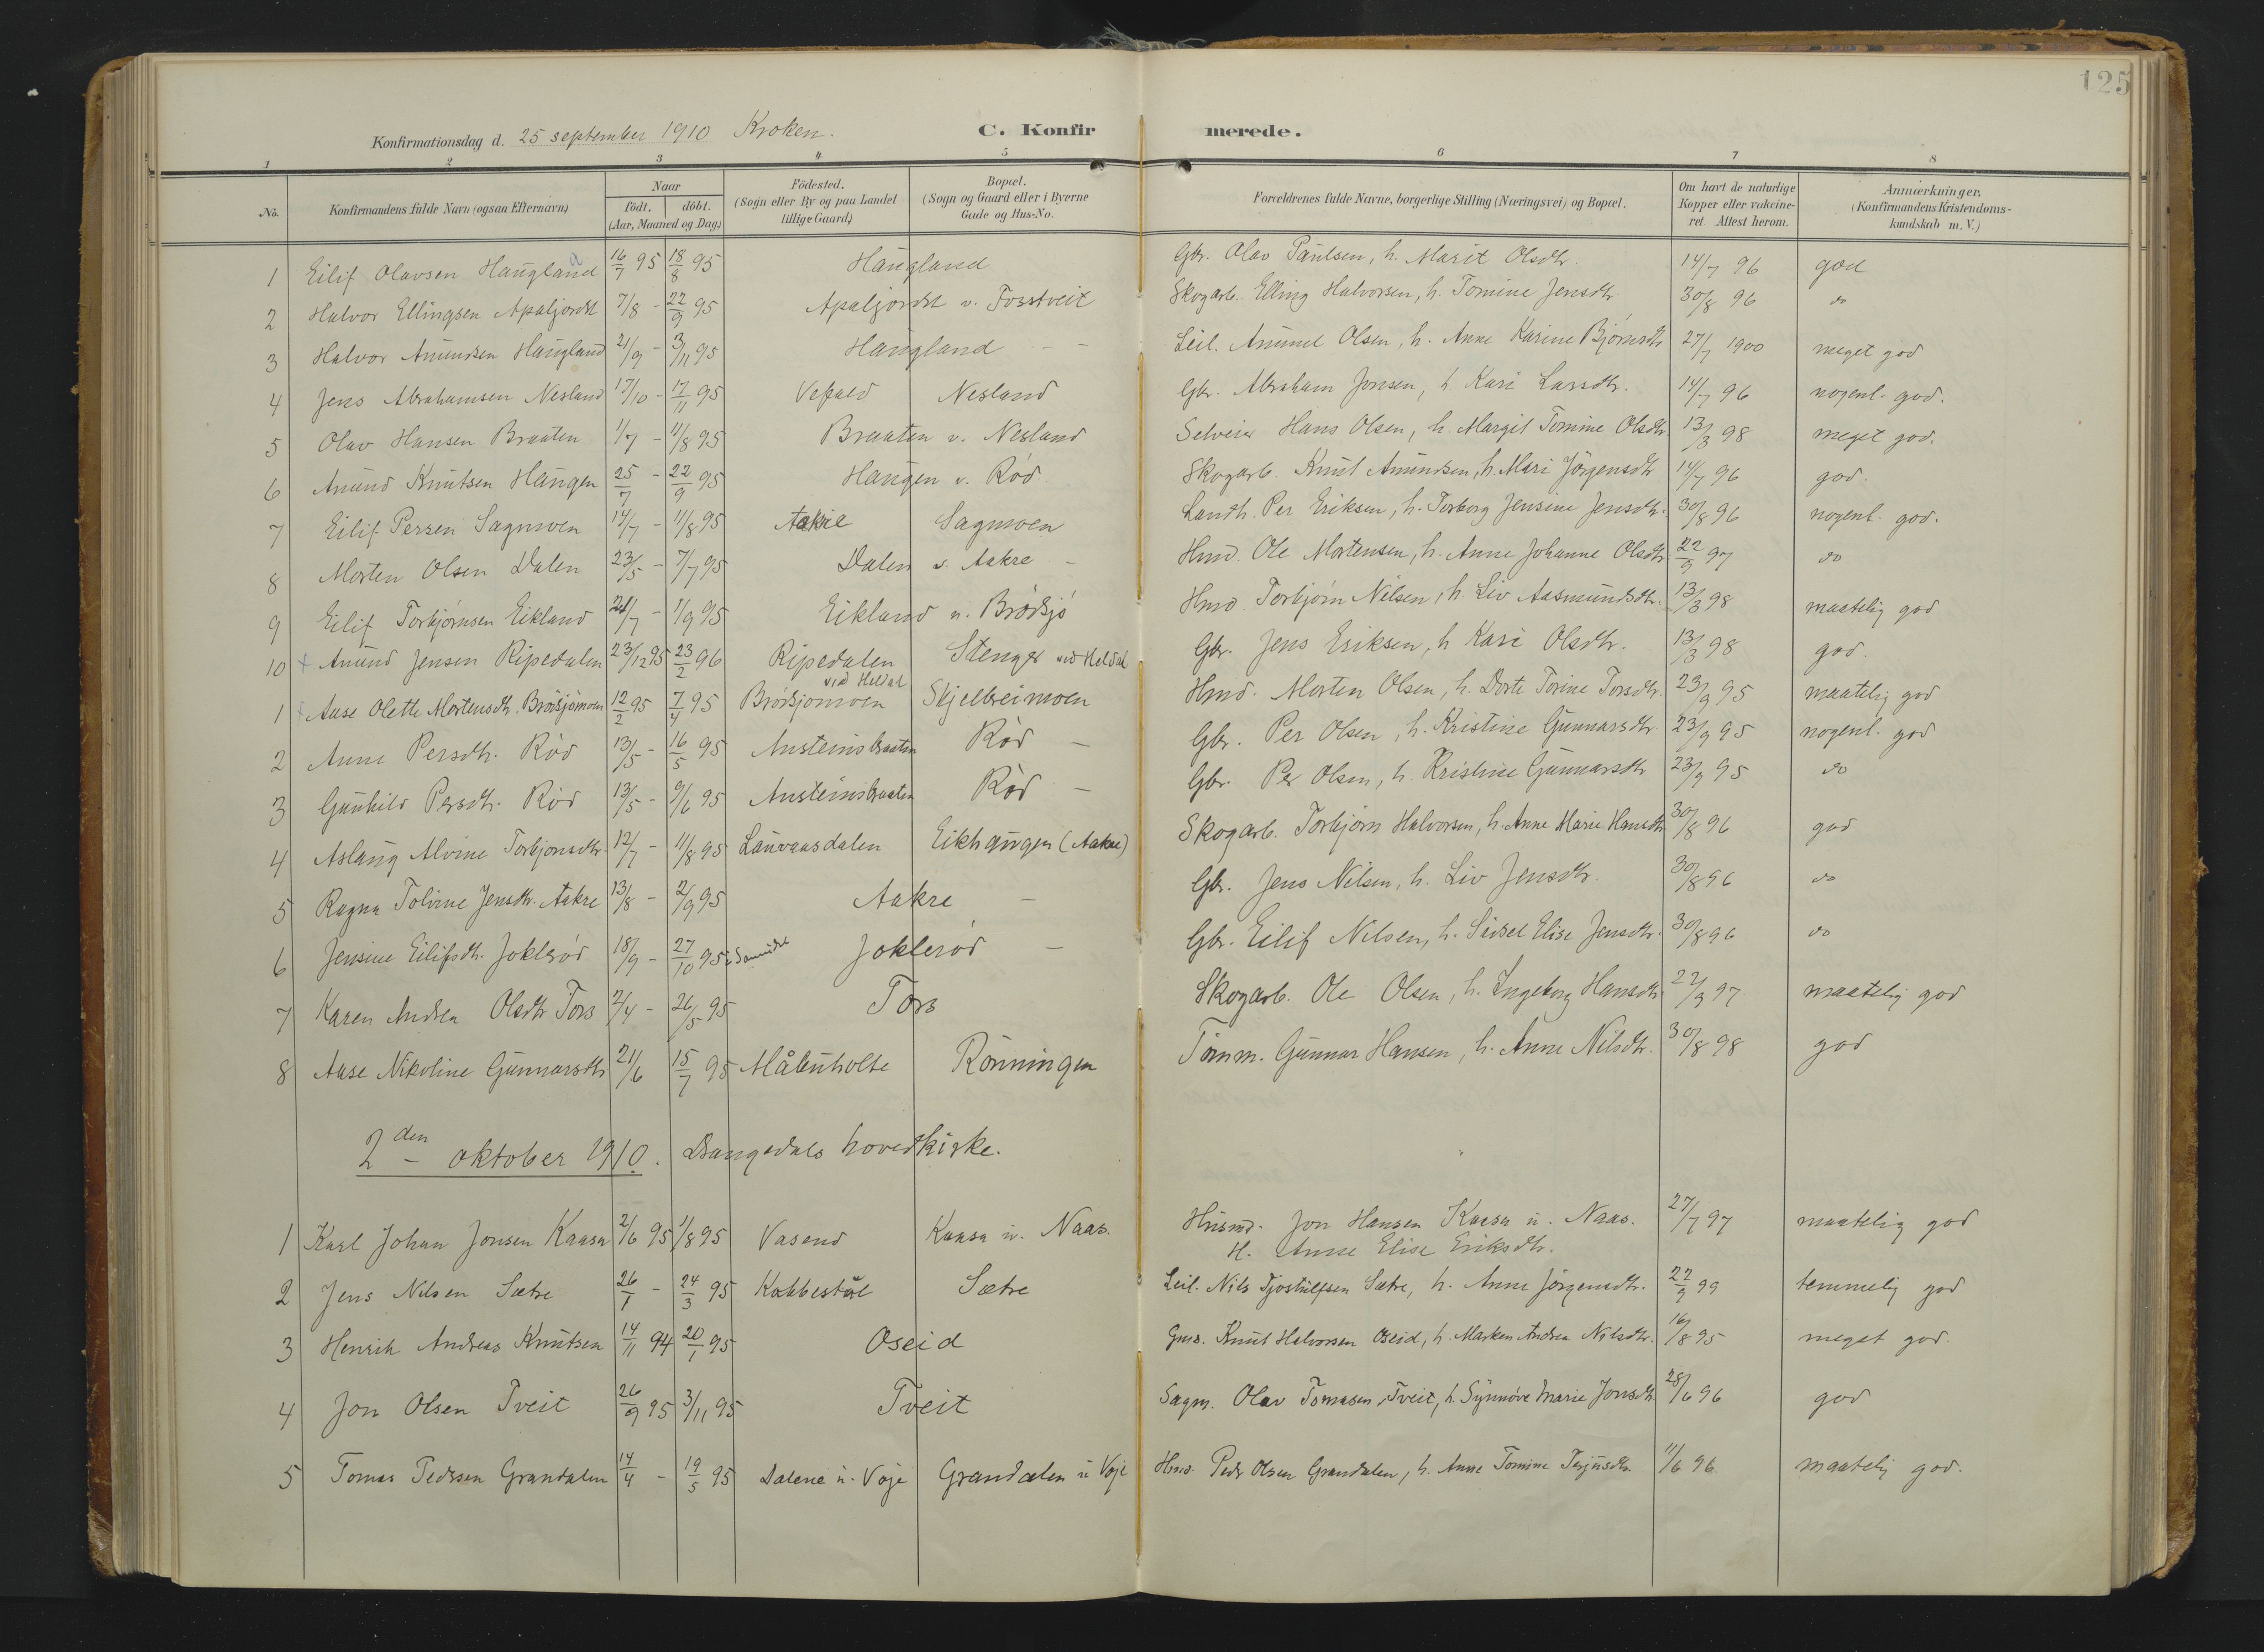 125
Konfirmationsdag d. 25 september 1910 Kroken. C. Konfirmerede.
1 2 3 4 5 6 7 8
No. Konfirmandens fulde Navn (ogsaa Efternavn) Naar födt. döbt. (Aar, Maaned og Dag.) Födested. (Sogn eller By og paa Landet tillige Gaard) Bopæl. (Sogn og Gaard eller i Byerne Gade og Hus-No. Forældrenes fulde Navne, borgerlige Stilling (Næringsvei) og Bopæl. Om havt de naturlige Kopper eller vakcineret Attest herom. Anmærkninger. (Konfirmandens Kristendomskundskab m. V.)
1 Eilif Olavsen Haugland 16/7 95 18/8 95 Haugland Gbr. Olav Paulsen, h. Marit Olsdtr. 14/7 96 god
2 Halvor Ellingsen Apaljordet 7/8 - 22/9 95 Apaljordet v. Fosstveit Skogarb. Elling Halvorsen, h. Tomine Jensdtr. 30/8 96 do
3 Halvor Amundsen Haugland 21/9 - 3/11 95 Haugland - - Leil. Amund Olsen, h. Anne Karine Bjørnsdtr 27/7 1900 meget god
4 Jens Abrahamsen Nesland 17/10 - 17/11 95 Nesland Gbr. Abraham Jonsen, h. Kari Larsdtr. 14/7 96 nogenl. god.
5 Olav Hansen Braaten 1/7 - 11/8 95 Braaten v. Nesland Selveier Hans Olsen, h. Margit Tomine Olsdtr. 13/3 98 meget god.
6 Amund Knutsen Haugen 25/7 - 22/9 95 Haugen v. Rød Skogarb. Knut Amundsen, h. Mari Jørgensdtr 14/7 96 god.
7 Eilif Persen Sagmoen 14/7 - 11/8 95 Aakre Sagmoen Landh. Per Eriksen, h. Torborg Jensine Jensdtr. 30/8 96 nogenl. god.
8 Morten Olsen Dalen 23/5 - 7/7 95 Dalen v. Aakre - Hmd. Ole Mortensen, h. Anne Johanne Olsdtr 22/9 97 do
9 Eilif Torbjørnsen Eikland 21/7 - 1/9 95 Eikland u. Brødsjø Hmd. Torbjørn Nilsen, h Liv Aasmundsdtr. 13/3 98 maatelig god
10 + Amund Jensen Ripedalen 23/12 95 23/2 96 Ripedalen ved Heldal Stenger ved Heldal Gbr. Jens Eriksen, h Kari Olsdtr. 13/3 98 god.
1 Aase Olette Mortensdtr. Brødsjømoen 12/2 95 7/4 95 Brødsjømoen Skjelbreimoen Hmd. Morten Olsen, h. Dorte Torine Torsdtr. 23/9 95 maatelig god
2 Anne Persdtr. Rød 13/5 - 16/5 95 Austeinsbraaten Rød - Gbr. Per Olsen, h. Kristine Gunnarsdtr. 23/9 95 nogenl. god
3 Gunhild Persdtr. Rød 13/5 - 9/6 95 Austeinsbraaten Rød - Gbr. Per Olsen, h. Kristine Gunnarsdtr 23/9 95 do
4 Aslaug Alvine Torbjønsdtr. 12/7 - 11/8 95 Lauvaasdalen Eikhaugen (Aakre) Skogarb. Torbjørn Halvorsen, h. Anne Marie Hansdtr 30/8 96 god
5 Ragna Tolvine Jensdtr. Aakre 13/8 - 2/9 95 Aakre - Gbr. Jens Nilsen, h. Liv Jensdtr. 30/8 96 do
6 Jensine Eilifsdtr. Joklerød 18/9 - 27/10 95 Joklerød - Gbr. Eilif Nilsen, h. Sissel Elise Jensdtr. 30/8 96 do
7 Karen Andrea Olsdtr Tors 2/4 - 26/5 95 Tors Skogarb. Ole Olsen, h. Ingeborg Hansdtr 22/9 97 maatelig god
8 Aase Nikoline Gunnarsdtr 21/6 15/7 95 Måbuholte Rönningen Tömm. Gunnar Hansen, h. Anne Nilsdtr. 30/8 98 god
2den - oktober 1910. Drangedals hovedkirke.
1 Karl Johan Jonsen Kaasa 2/6 95 1/8 95 Vasend Kaasa u. Naas. Husmd. Jon Hansen Kaasa u. Naas. 27/7 97 maatelig god
H. Anne Elise Eriksdtr.
2 Jens Nilsen Sætre 26/1 - 24/3 95 Kabbestøl Sætre Leil. Nils Tjostulfsen Sætre, h. Anne Jörgensdtr. 22/9 99 temmelig god
3 Henrik Andreas Knutsen 14/11 94 20/1 95 Oseid Gmd. Knut Halvorsen Oseid, h. Marken Andrea Nilsdtr. 16/8 95 meget god.
4 Jon Olsen Tveit 26/9 95 3/11 95 Tveit Sagm. Olav Tomasen Tveit, h. Synnöve Marie Jonsdtr. 28/6 96 god
5 Tomas Pedersen Grandalen 14/4 - 19/5 95 Dalene u. Voje Grandalen u Voje Hmd. Peder Olsen Grandalen, h. Anne Tomine Terjusdtr. 11/6 96 maatelig god.